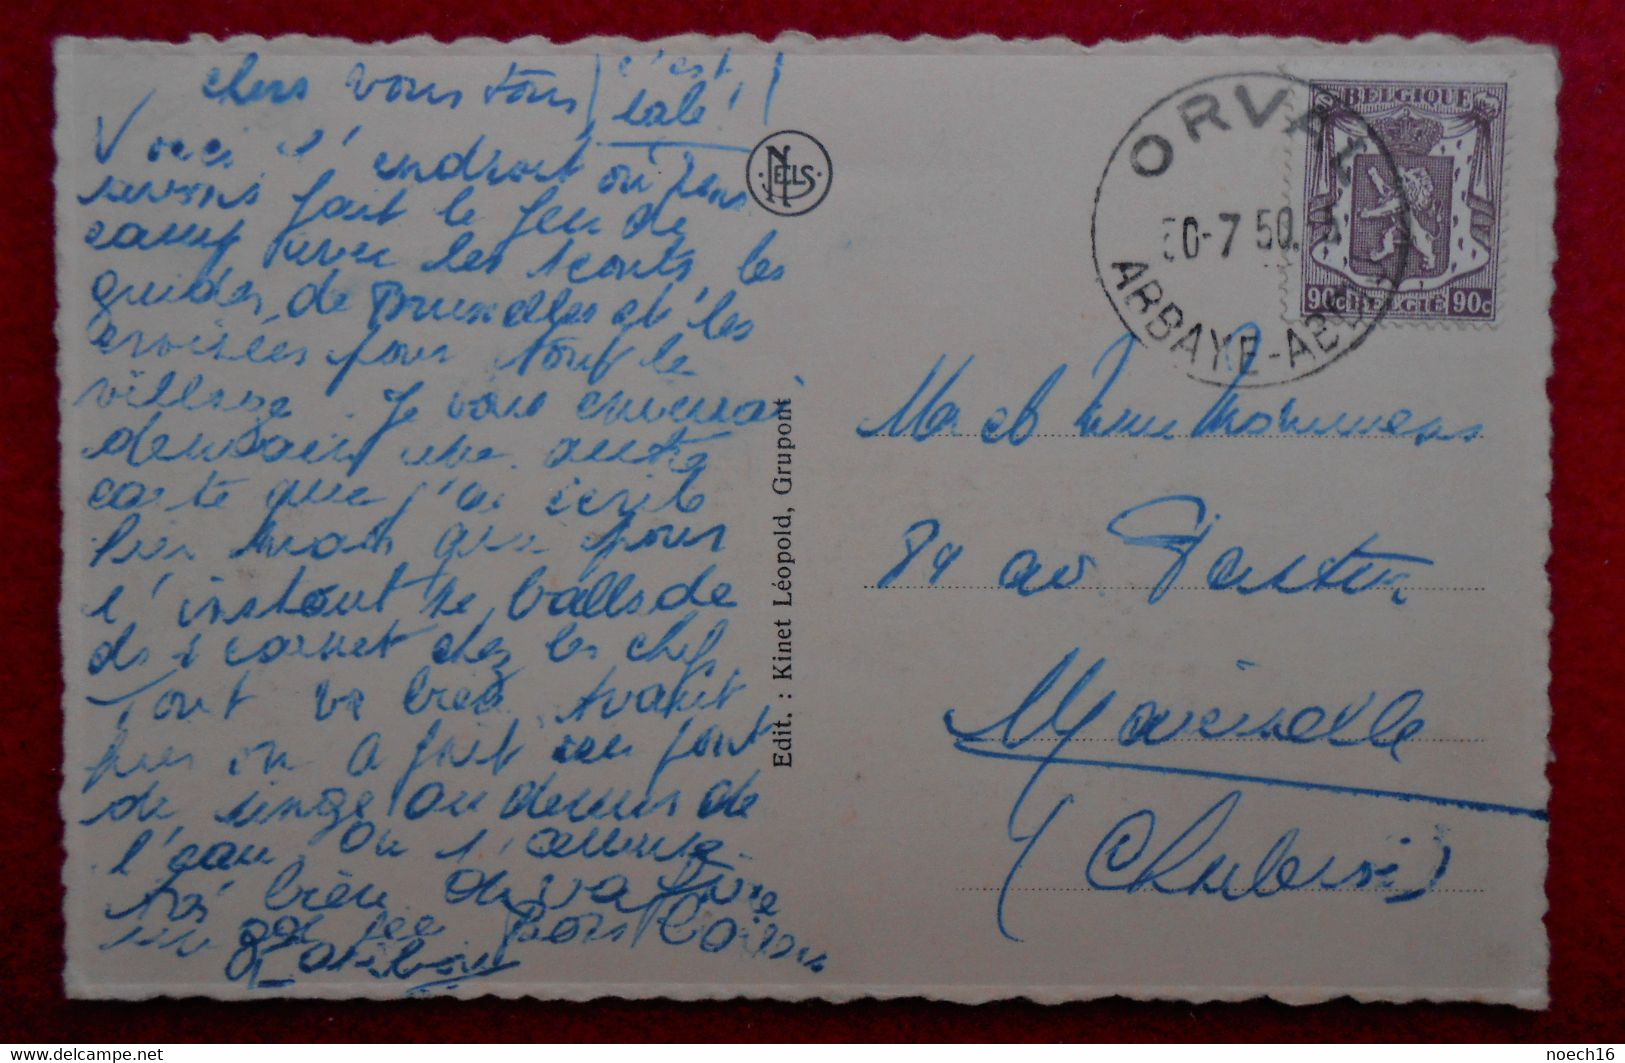 chers vous tous (c'est
sale!)
Voici l'endroit où nous
avons fait le feu de
camp avec les scouts, les
guides de Bruxelles et les
croisées pour tout le
village. Je vous enverrai
demain une autre
carte que j'ai écrite
hier mais que pour
l'instant se ballade
chez les chefs
Tout va bien. Avant
hier on a fait un pont
de singe au dessus de
l'eau. On s'amuse
très bien on va faire
Bons Baisers
NELS
Edit. : Kinet Léopold, Grupont
ORVAL
30-7 50
ABBAYE-ABDIJ
BELGIQUE
90c BELGIE 90c
Mr et Mme
89 av Pasteur
Marcinelle
(Charleroi)
noech16